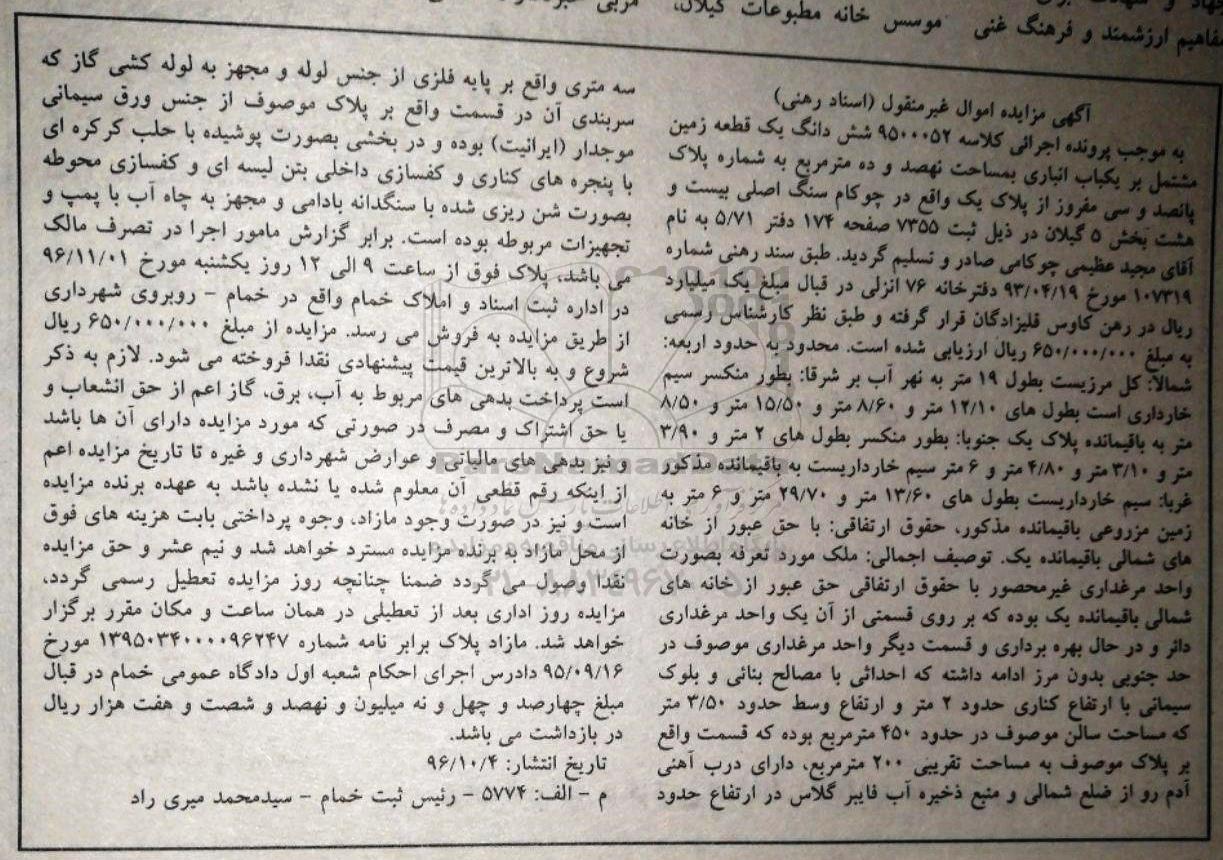 مفاهیم ارزشمند و فرهنگ غنی
موسس خانه مطبوعات گیلان،
آگهی مزایده اموال غیرمنقول (اسناد رهنی)
به موجب پرونده اجرائی کلاسه ۹۵۰۰۰۵۲ شش دانگ یک قطعه زمین
مشتمل بر یکباب انباری بمساحت نهصد و ده مترمربع به شماره پلاک
پانصد و سی مفروز از پلاک یک واقع در چوکام سنگ اصلی بیست و
هشت بخش ۵ گیلان در ذیل ثبت ۷۳۵۵ صفحه ۱۷۴ دفتر ۵/۷۱ به نام
آقای مجید عظیمی چوکامی صادر و تسلیم گردید. طبق سند رهنی شماره
۱۰۷۳۱۹ مورخ ۹۳/۰۴/۱۹ دفترخانه ۷۶ انزلی در قبال مبلغ یک میلیارد
ریال در رهن کاوس قلیزادگان قرار گرفته و طبق نظر کارشناس رسمی
به مبلغ ۶۵۰/۰۰۰/۰۰۰ ریال ارزیابی شده است. محدود به حدود اربعه:
شمالاً: کل مرزیست بطول ۱۹ متر به نهر آب بر شرقا: بطور منکسر سیم
خارداری است بطول های ۱۲/۱۰ متر و ۸/۶۰ متر و ۱۵/۵۰ متر و ۸/۵۰
متر به باقیمانده پلاک یک جنوبا: بطور منکسر بطول های ۲ متر و ۳/۹۰
متر و ۳/۱۰ متر و ۴/۸۰ متر و ۶ متر سیم خارداریست به باقیمانده مذکور
غربا: سیم خارداریست بطول های ۱۳/۶۰ متر و ۲۹/۷۰ متر و ۶ متر به
زمین مزروعی باقیمانده مذکور، حقوق ارتفاقی: با حق عبور از خانه
های شمالی باقیمانده یک. توصیف اجمالی: ملک مورد تعرفه بصورت
واحد مرغداری غیرمحصور با حقوق ارتفاقی حق عبور از خانه های
شمالی باقیمانده یک بوده که بر روی قسمتی از آن یک واحد مرغداری
دائر و در حال بهره برداری و قسمت دیگر واحد مرغداری موصوف در
حد جنوبی بدون مرز ادامه داشته که احداثی با مصالح بنائی و بلوک
سیمانی با ارتفاع کناری حدود ۲ متر و ارتفاع وسط حدود ۳/۵۰ متر
که مساحت سالن موصوف در حدود ۴۵۰ مترمربع بوده که قسمت واقع
بر پلاک موصوف به مساحت تقریبی ۲۰۰ مترمربع، دارای درب آهنی
آدم رو از ضلع شمالی و منبع ذخیره آب فایبر گلاس در ارتفاع حدود
سه متری واقع بر پایه فلزی از جنس لوله و مجهز به لوله کشی گاز که
سربندی آن در قسمت واقع بر پلاک موصوف از جنس ورق سیمانی
موجدار (ایرانیت) بوده و در بخشی بصورت پوشیده با حلب کرکره ای
با پنجره های کناری و کفسازی داخلی بتن لیسه ای و کفسازی محوطه
بصورت شن ریزی شده با سنگدانه بادامی و مجهز به چاه آب با پمپ و
تجهیزات مربوطه بوده است. برابر گزارش مامور اجرا در تصرف مالک
می باشد، پلاک فوق از ساعت ۹ الی ۱۲ روز یکشنبه مورخ ۹۶/۱۱/۰۱
در اداره ثبت اسناد و املاک خمام واقع در خمام - روبروی شهرداری
از طریق مزایده به فروش می رسد. مزایده از مبلغ ۶۵۰/۰۰۰/۰۰۰ ریال
شروع و به بالاترین قیمت پیشنهادی نقدا فروخته می شود. لازم به ذکر
است پرداخت بدهی های مربوط به آب، برق، گاز اعم از حق انشعاب و
یا حق اشتراک و مصرف در صورتی که مورد مزایده دارای آن ها باشد
و نیز بدهی های مالیاتی و عوارض شهرداری و غیره تا تاریخ مزایده اعم
از اینکه رقم قطعی آن معلوم شده یا نشده باشد به عهده برنده مزایده
است و نیز در صورت وجود مازاد، وجوه پرداختی بابت هزینه های فوق
از محل مازاد به برنده مزایده مسترد خواهد شد و نیم عشر و حق مزایده
نقدا وصول می گردد ضمنا چنانچه روز مزایده تعطیل رسمی گردد،
مزایده روز اداری بعد از تعطیلی در همان ساعت و مکان مقرر برگزار
خواهد شد. مازاد پلاک برابر نامه شماره ۱۳۹۵۰۳۴۰۰۰۰۹۶۲۴۷ مورخ
۹۵/۰۹/۱۶ دادرس اجرای احکام شعبه اول دادگاه عمومی خمام در قبال
مبلغ چهارصد و چهل و نه میلیون و نهصد و شصت و هفت هزار ریال
در بازداشت می باشد.
تاریخ انتشار: ۹۶/۱۰/۴
م - الف: ۵۷۷۴ - رئیس ثبت خمام - سیدمحمد میری راد